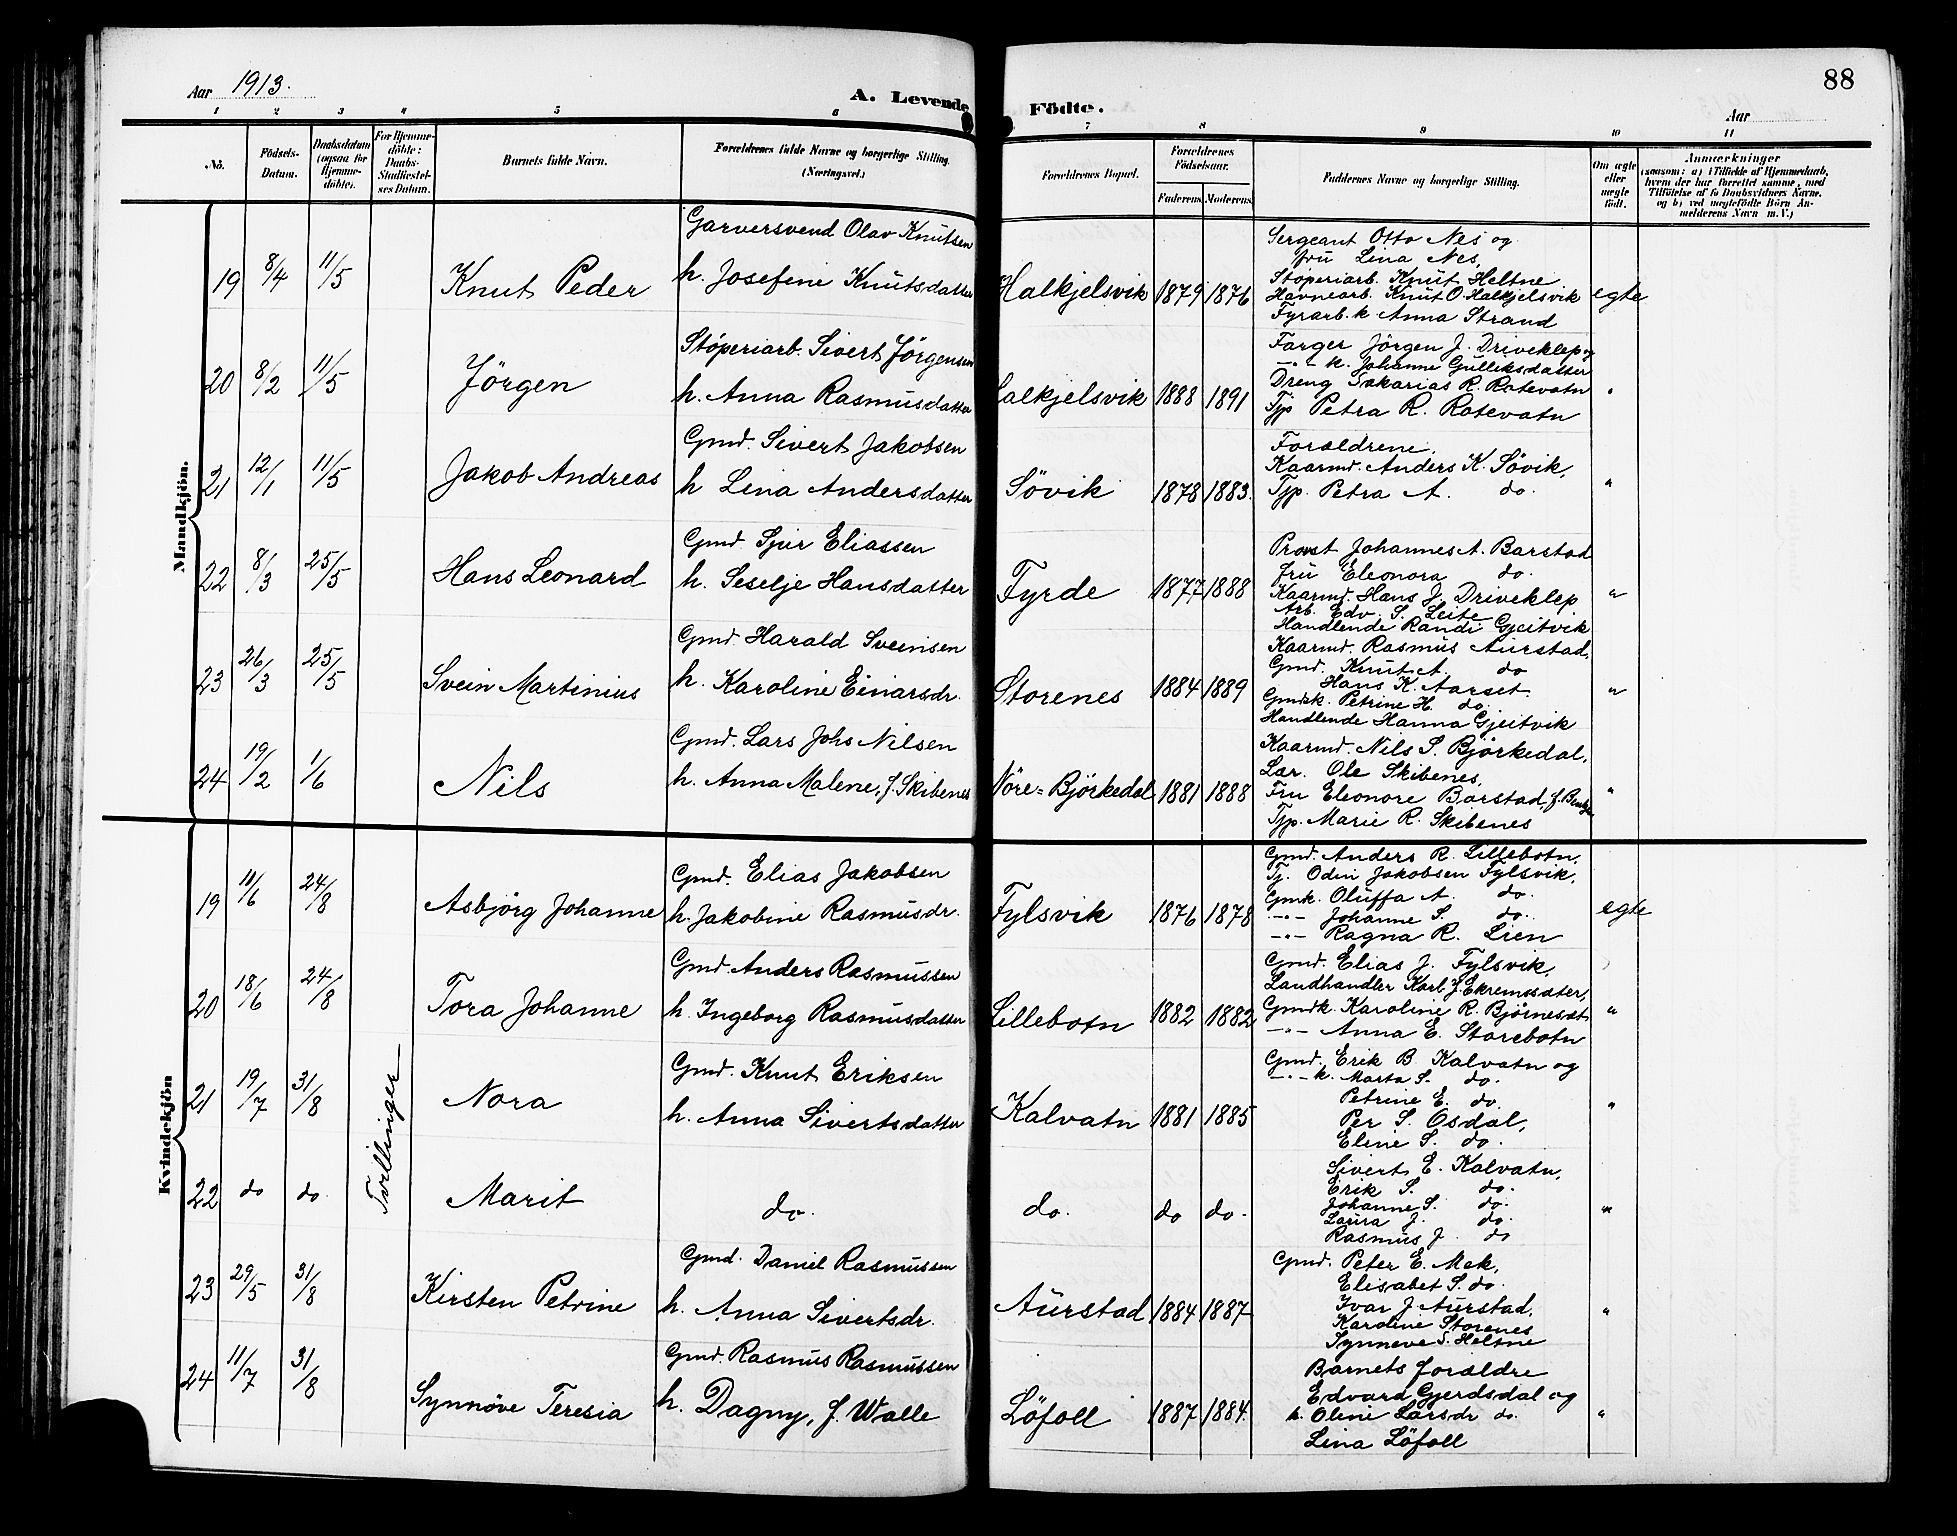 88
Aar 1913.
A. Levende Födte.
Aar
1 2 3 4 5 6 7 8 9 10 11
No.
Födsels-Datum.
Daabsdatum (ogsaa for Hjemme-döbte).
For Hjemme-döbte: Daabs-Stadfæstel-ses Datum.
Barnets fulde Navn.
Forældrenes fulde Navne og borgerlige Stilling. (Næringsvei.)
Forældrenes Bopæl.
Forældrenes Födselsaar.
Faderens. Moderens.
Faddernes Navne og borgerlige Stilling.
Om ægte eller uægte födt.
Anmærkninger
(saasom: a) i Tilfælde af Hjemmedaab,
hvem der har forrettet samme, med
Tilföielse af to Daabsvidners Navne,
og b) ved uægtefödte Börn An-
melderens Navn m. V.)
Mandkjön.
19 8/4 11/5 Knut Peder
Garversvend Olav Knutsen
h. Josefine Knutsdatter
Halkjelsvik 1879 1876
Sergeant Otto Nes og
fru Lina Nes,
Støperiarb. Knut Heltne
Havnearb. Knut O. Halkjelsvik
Fyrarb. k Anna Strand
egte
20 8/2 11/5 Jörgen
Støperiarb. Sivert Jörgensen
h. Anna Rasmusdatter
Halkjelsvik 1888 1891
Farger Jörgen J. Driveklep og
-"- k. Johanne Gulliksdatter
Dreng Sakarias R. Rotevatn
Tjp Petra R. Rotevatn
"
21 12/1 11/5 Jakob Andreas
Gmd. Sivert Jakobsen
h Lina Andersdatter
Sövik 1878 1883.
Forældrene,
Kaarmd. Anders K. Sövik,
Tjp. Petra A. do.
"
22 8/3 25/5 Hans Leonard
Gmd. Sjur Eliassen
h. Seselje Hansdatter
Fyrde 1877 1888
Provst Johannes A. Barstad
fru Eleonora do.
Kaarmd. Hans J. Driveklep
Arb. Edv. S. Leite
Handlende Randi Gjeitvik
"
23 26/3 25/5 Svein Martinius
Gmd. Harald Sveinsen
h. Karoline Einarsdr.
Storenes 1884 1889
Kaarmd. Rasmus Aurstad,
Gmd. Knut A. do
Hans K. Aarset.
Gmdsk. Petrine H. do.
Handlende Hanna Gjeitvik
"
24 19/2 1/6 Nils
Gmd. Lars Johs Nilsen
h. Anna Malene, f. Skibenes
Nöre=Björkedal 1881 1888
Kaarmd. Nils S. Björkedal,
Lær. Ole Skibenes,
Fru Eleonore Barstad, f.
Tjp. Marie R. Skibenes
"
Kvindekjön
19 11/6 24/8 Asbjörg Johanne
Gmd. Elias Jakobsen
h. Jakobine Rasmusdr.
Fylsvik 1876 1878
Gmd. Anders R. Lillebotn,
Tj. Odin Jakobsen Fylsvik,
Gmk. Oluffa A. do.
-"- Johanne S. do.
-"- Ragna R. Lien
egte
20 18/6 24/8 Tora Johanne
Gmd. Anders Rasmussen
h. Ingeborg Rasmusdatter
Lillebotn 1882 1882
Gmd. Elias J. Fylsvik,
Landhandler Karl J. Ekremssæter,
Gmdk. Karoline R. Björneset
-"- Anna E. Storebotn
"
Tvillinger
21 19/7 31/8 Nora
Gmd. Knut Eriksen
h. Anna Sivertsdatter
Kalvatn 1881 1885
Gmd. Erik B. Kalvatn og
-"- k. Marta S. do.
Petrine E. do
Per S. Osdal,
Eline S. do.
"
22 do do. Marit
do.
do. do do.
Sivert E. Kalvatn,
Erik S. do.
Johanne S. do.
Laura J. do.
Rasmus J. do
"
23 29/5 31/8 Kirsten Petrine
Gmd. Daniel Rasmussen
h. Anna Sivertsdr.
Aurstad 1884 1887
Gmd. Peter E. Mek,
Elisabet S. do.
Ivar J. Aurstad,
Karoline Storenes
Synneve S. Heltne
"
24 11/7 31/8 Synnöve Teresia
Gmd. Rasmus Rasmussen
h. Dagny, f. Walle
Löfoll 1887 1884.
Barnets forældre
Edvard Gjerdsdal og
k. Oline Larsdr do.
Lina Löfoll
"